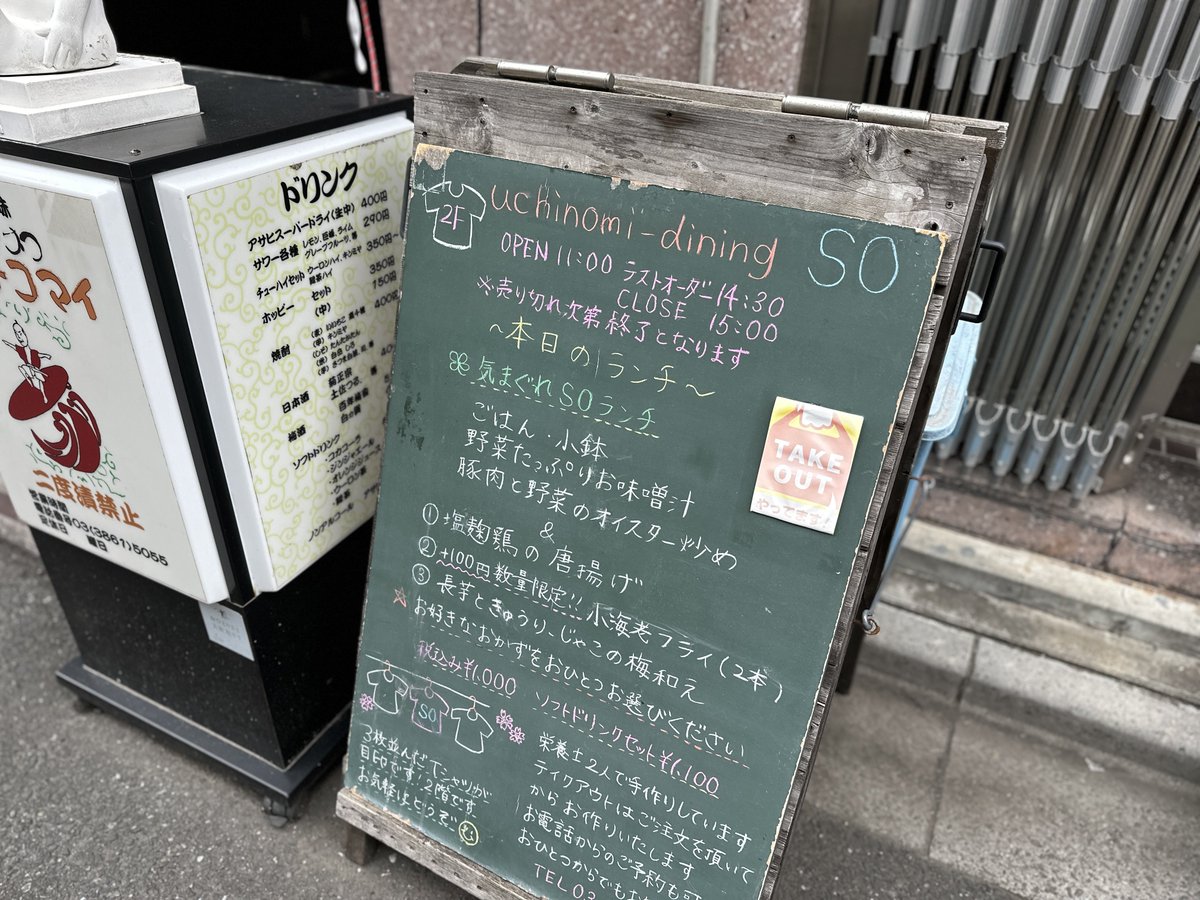 ドリンク
アサヒスーパードライ(生中) 400円
サワー各種 レモン、巨峰、ライム 290円
グレープフルーツ、梅
チューハイセット ウーロンハイ、キンミヤ 350円
緑茶ハイ
ホッピー セット 350円
(中) 150円
焼酎
日本酒
梅酒
ソフトドリンク
・コカコーラ
・ジンジャエール
ノンアルコール
コマイ
二度漬禁止
電話番号03(3861)5055
定休日
2F
uchinomi-dining SO
OPEN 11:00 ラストオーダー14:30
CLOSE 15:00
※売り切れ次第終了となります
~本日のランチ~
気まぐれSOランチ
ごはん・小鉢
野菜たっぷりお味噌汁
豚肉と野菜のオイスター炒め
&
① 塩麹鶏の唐揚げ
② +100円数量限定!! 小海老フライ(2本)
③ 長芋ときゅうり、じゃこの梅和え
☆お好きなおかずをおひとつお選びください
税込み¥1,000 ソフトドリンクセット¥1,100
TAKE
OUT
やってます!
SO
3枚並んだTシャツが
目印です!2階です。
お気軽にどうぞ
栄養士2人で手作りしています
テイクアウトはご注文を頂いて
からお作りいたします
お電話からのご予約も
おひとつからでも
TEL 03